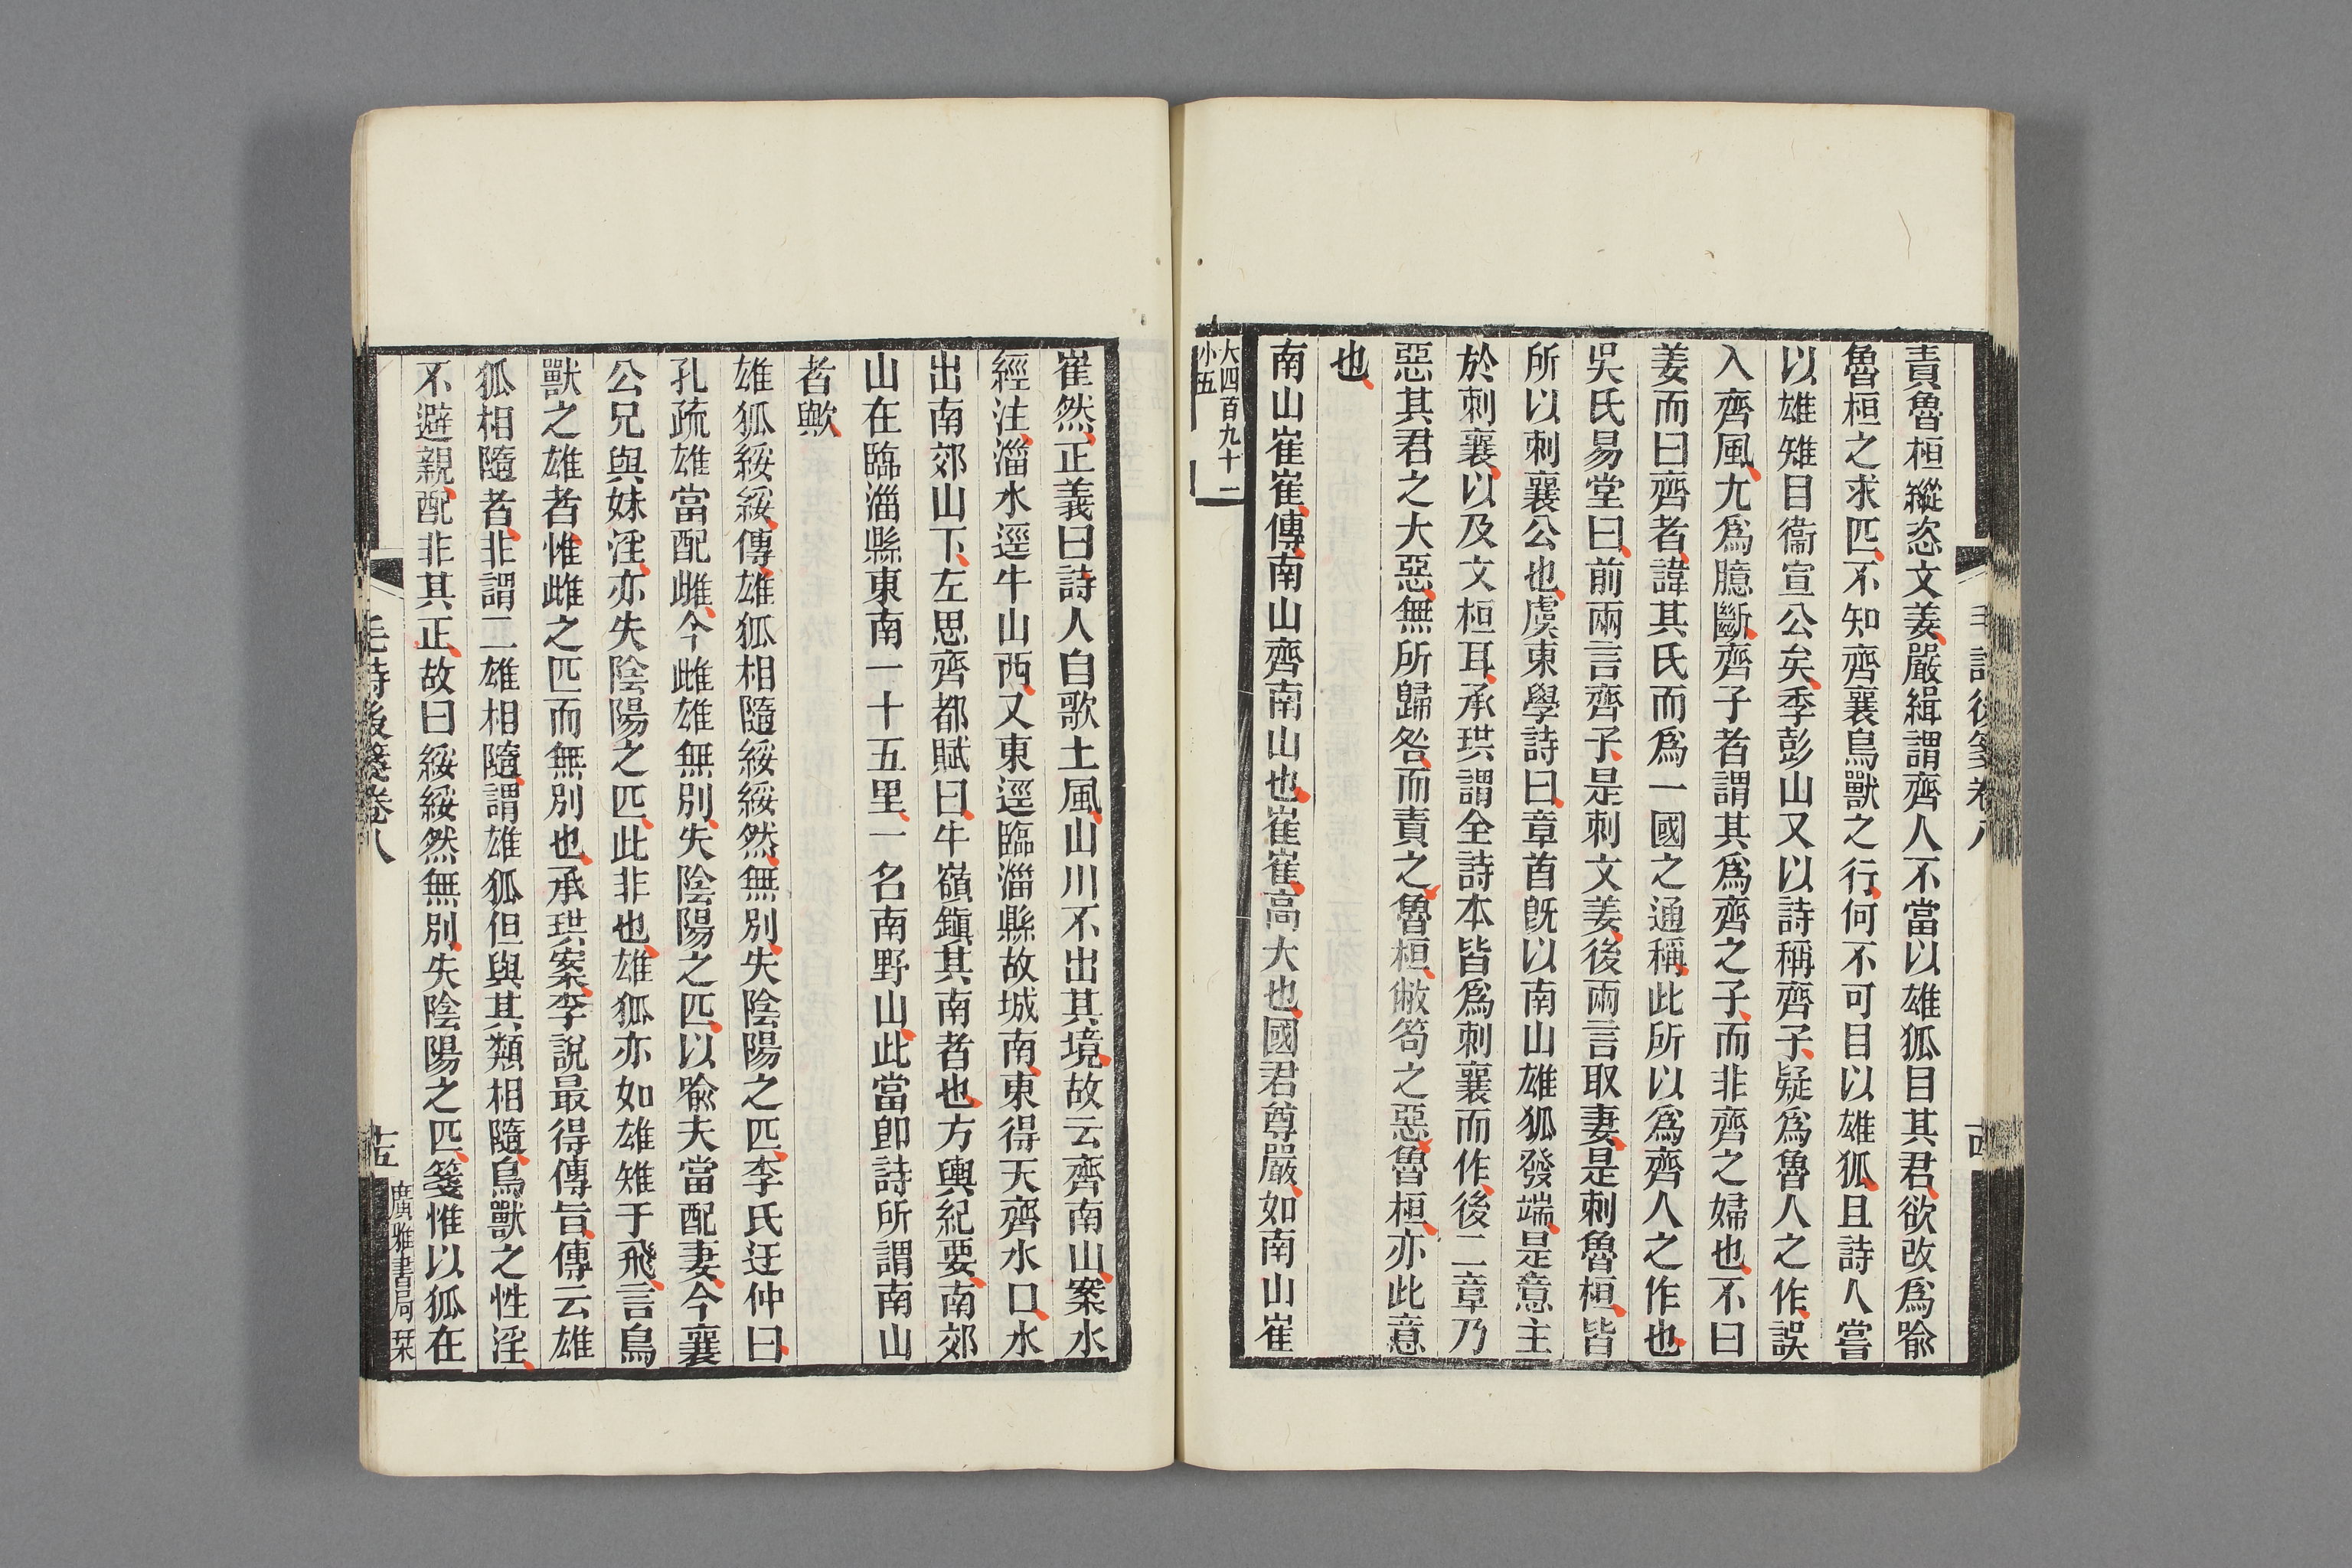 責魯桓縱恣文姜嚴緝謂齊人不當以雄狐目其君欲改爲喩
魯桓之求匹不知齊襄鳥獸之行何不可目以雄狐且詩人嘗
以雄雉目衞宣公矣季彭山又以詩稱齊子疑爲魯人之作誤
入齊風尢爲臆斷齊子者謂其爲齊之子而非齊之婦也不曰
姜而曰齊者諱其氏而爲一國之通稱此所以爲齊人之作也
吳氏易堂曰前兩言齊子是刺文姜後兩言取妻是刺魯桓皆
所以刺襄公也虞東學詩曰章首旣以南山雄狐發端是意主
於刺襄以及文桓耳承珙謂全詩本皆爲刺襄而作後二章乃
惡其君之大惡無所歸咎而責之魯桓敝笱之惡魯桓亦此意
也
南山崔崔傳南山齊南山也崔崔高大也國君尊嚴如南山崔
大四百九十一
小五
毛詩後箋卷八
十四
崔然正義曰詩人自歌土風山川不出其境故云齊南山案水
經注淄水逕牛山西又東逕臨淄縣故城南東得天齊水口水
出南郊山下左思齊都賦曰牛嶺鎭其南者也方輿紀要南郊
山在臨淄縣東南一十五里一名南野山此當卽詩所謂南山
者歟
雄狐綏綏傳雄狐相隨綏綏然無別失陰陽之匹李氏迂仲曰
孔疏雄當配雌今雌雄無別失陰陽之匹以喩夫當配妻今襄
公兄與妹淫亦失陰陽之匹此非也雄狐亦如雄雉于飛言鳥
獸之雄者惟雌之匹而無別也承珙案李說最得傳旨傳云雄
狐相隨者非謂二雄相隨謂雄狐但與其類相隨鳥獸之性淫
不避親配非其正故曰綏綏然無別失陰陽之匹箋惟以狐在
毛詩後箋卷八
十五
廣雅書局栞